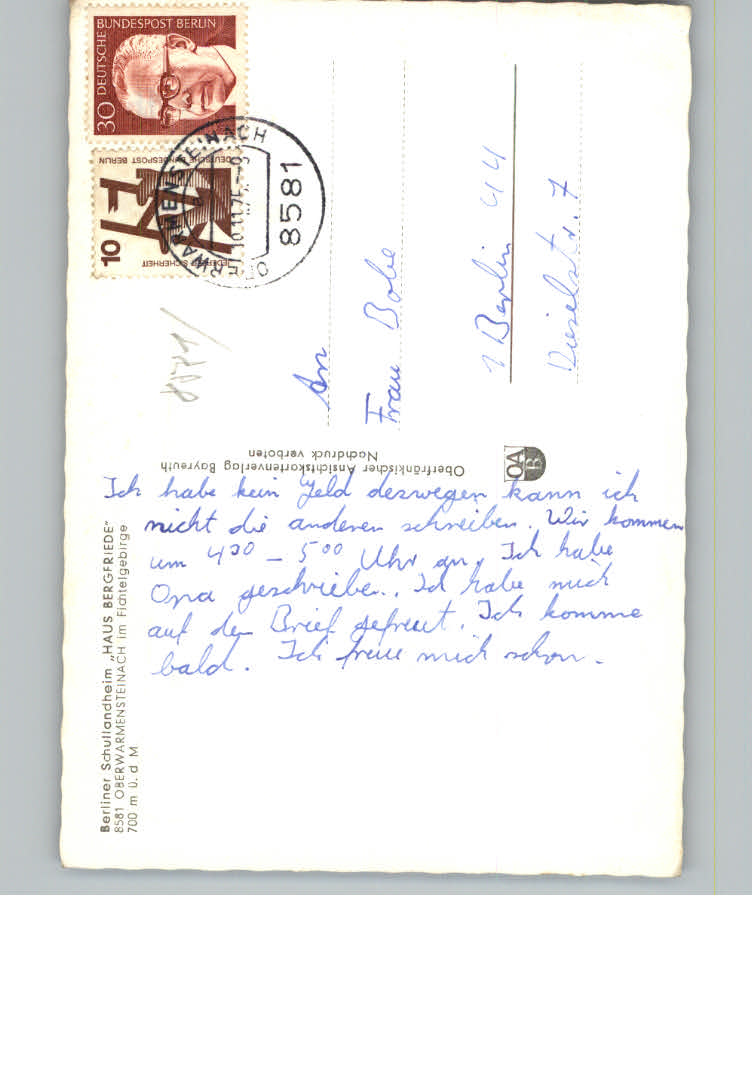 DEUTSCHE BUNDESPOST BERLIN
30
DEUTSCHE BUNDESPOST BERLIN
10
JEDERZEIT SICHERHEIT
OBERWARMENSTEINACH
8581
8571/
An
Frau Bobe
1 Berlin 44
Dieselstr. 7
Oberfränkischer Ansichtskartenverlag Bayreuth
Nachdruck verboten
OA
B
Ich habe kein Geld deswegen kann ich
nicht die anderen schreiben. Wir kommen
um 4³⁰ – 5⁰⁰ Uhr an. Ich habe
Opa geschrieben. Ich habe mich
auf den Brief gefreut. Ich komme
bald. Ich freue mich schon.
Berliner Schullandheim „HAUS BERGFRIEDE"
8581 OBERWARMENSTEINACH im Fichtelgebirge
700 m ü. d M